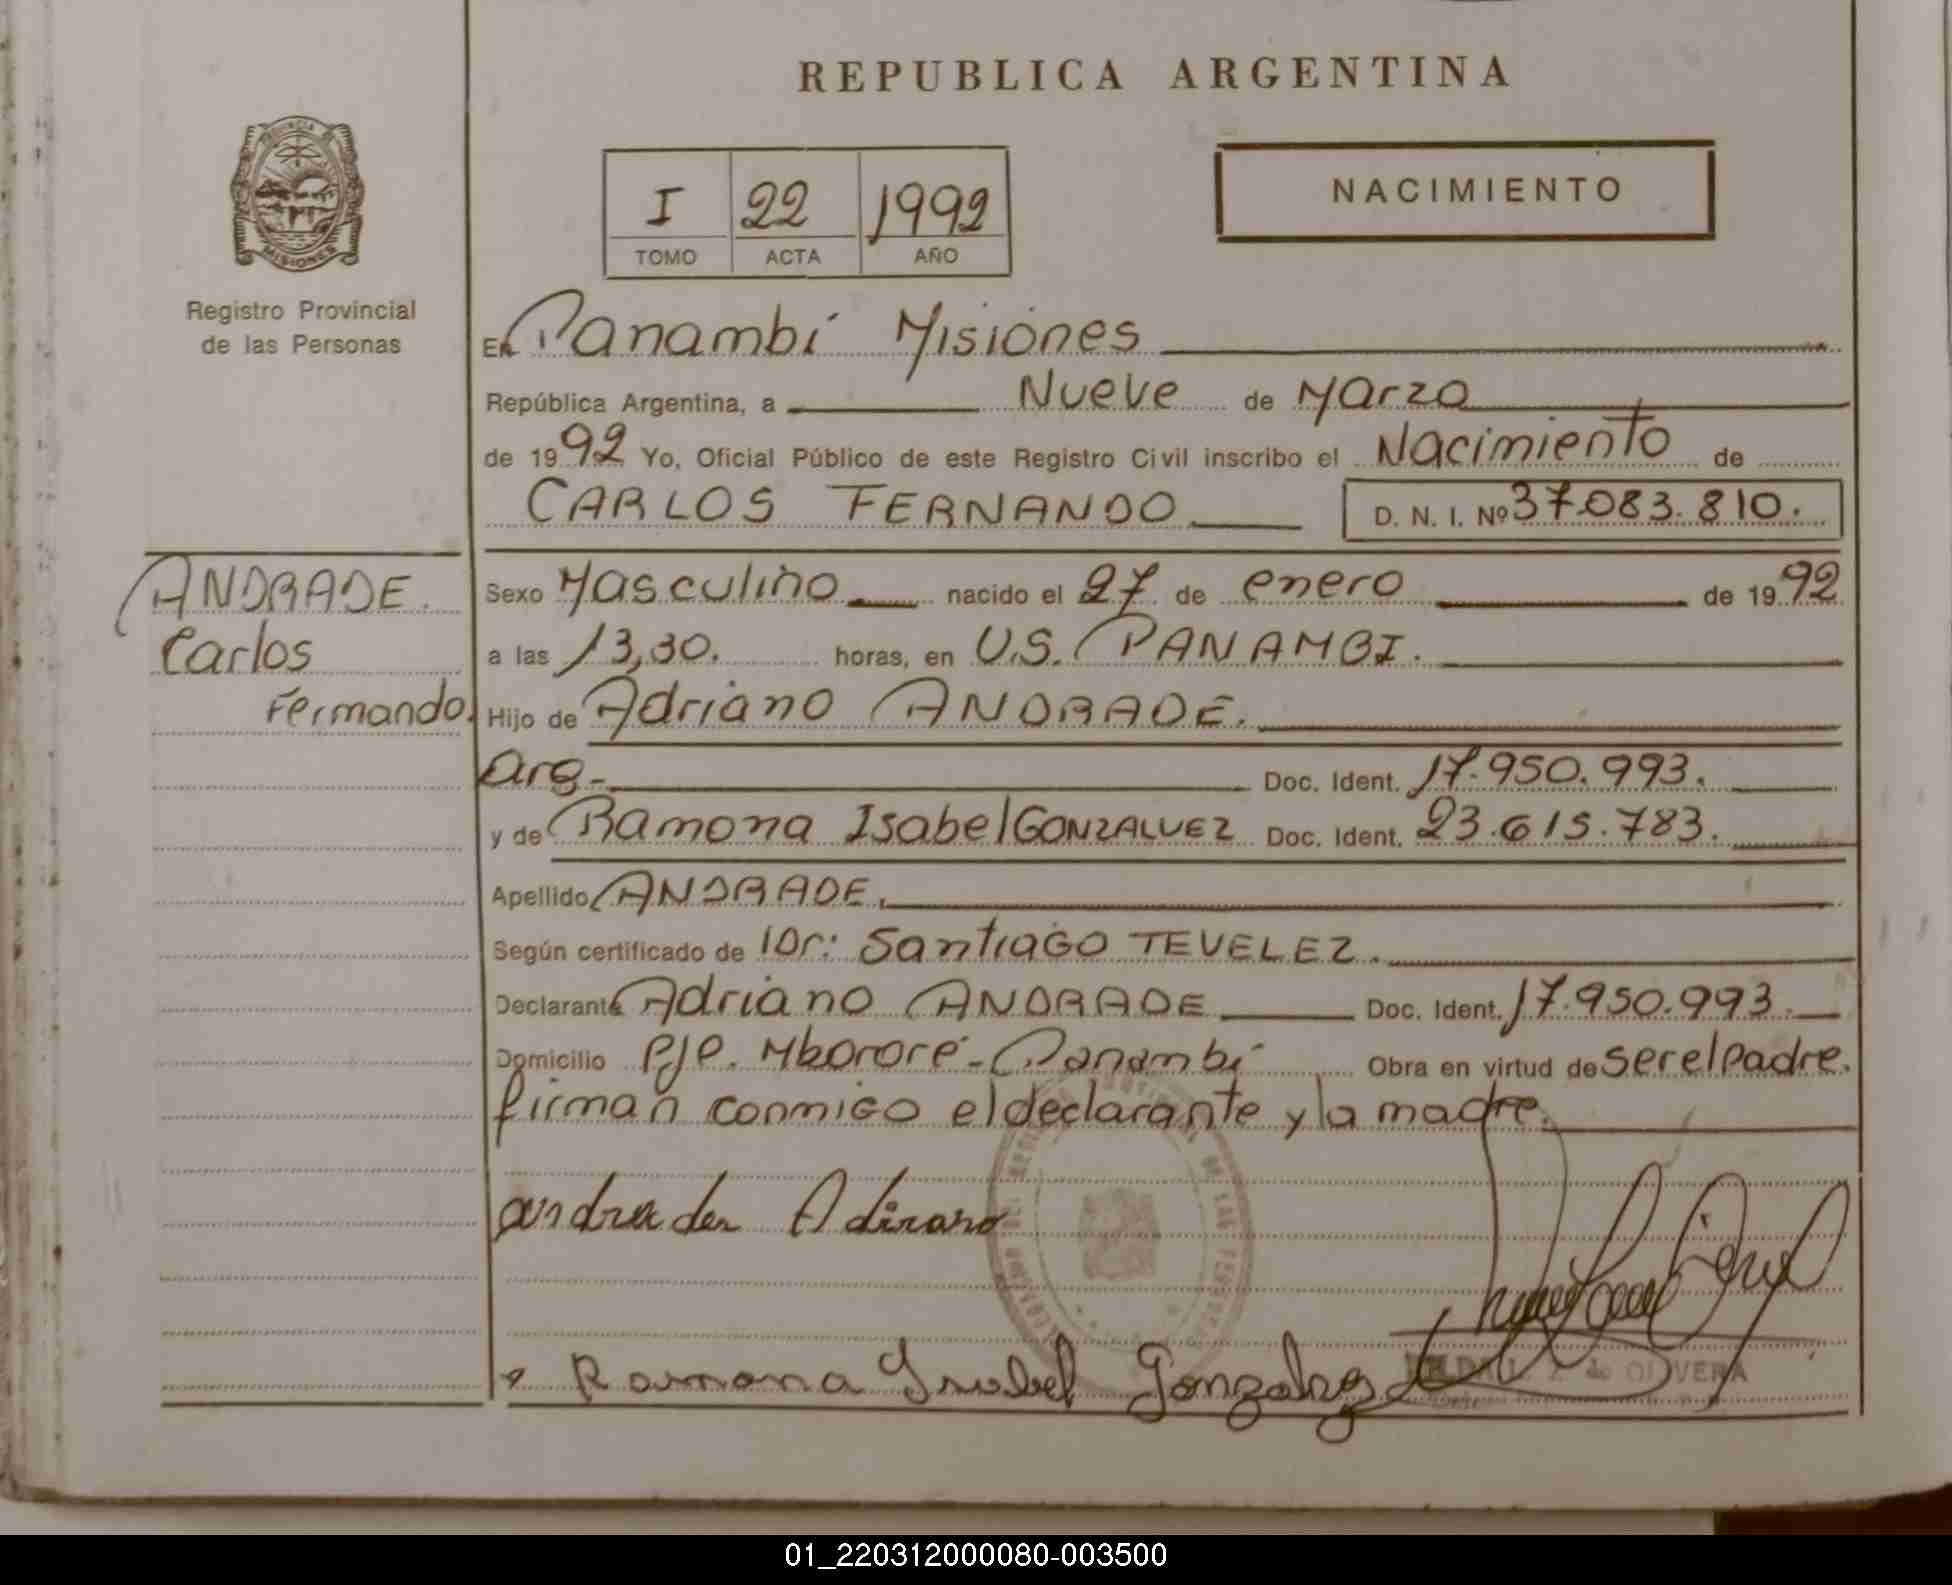 REPUBLICA ARGENTINA
PROVINCIA DE
MISIONES
Registro Provincial
de las Personas
I 22 1992
TOMO ACTA AÑO
NACIMIENTO
En Panambí Misiones
República Argentina, a Nueve de Marzo
de 1992 Yo, Oficial Público de este Registro Civil inscribo el Nacimiento de
CARLOS FERNANDO D. N. I. Nº 37.083.810.
ANDRADE.
Carlos
Fernando.
Sexo Masculino nacido el 27 de enero de 1992
a las 13,30. horas, en U.S. PANAMBI.
Hijo de Adriano ANDRADE.
Arg.- Doc. Ident. 17.950.993.
y de Ramona Isabel GONZALVEZ Doc. Ident. 23.615.783.
Apellido ANDRADE.
Según certificado de Dr: Santiago TEVELEZ.
Declarante Adriano ANDRADE Doc. Ident. 17.950.993.
Domicilio Pje. Mbororé - Panambí Obra en virtud de ser el padre.
firman conmigo el declarante y la madre.
Ramona Isabel
de OLIVERA
01_220312000080-003500